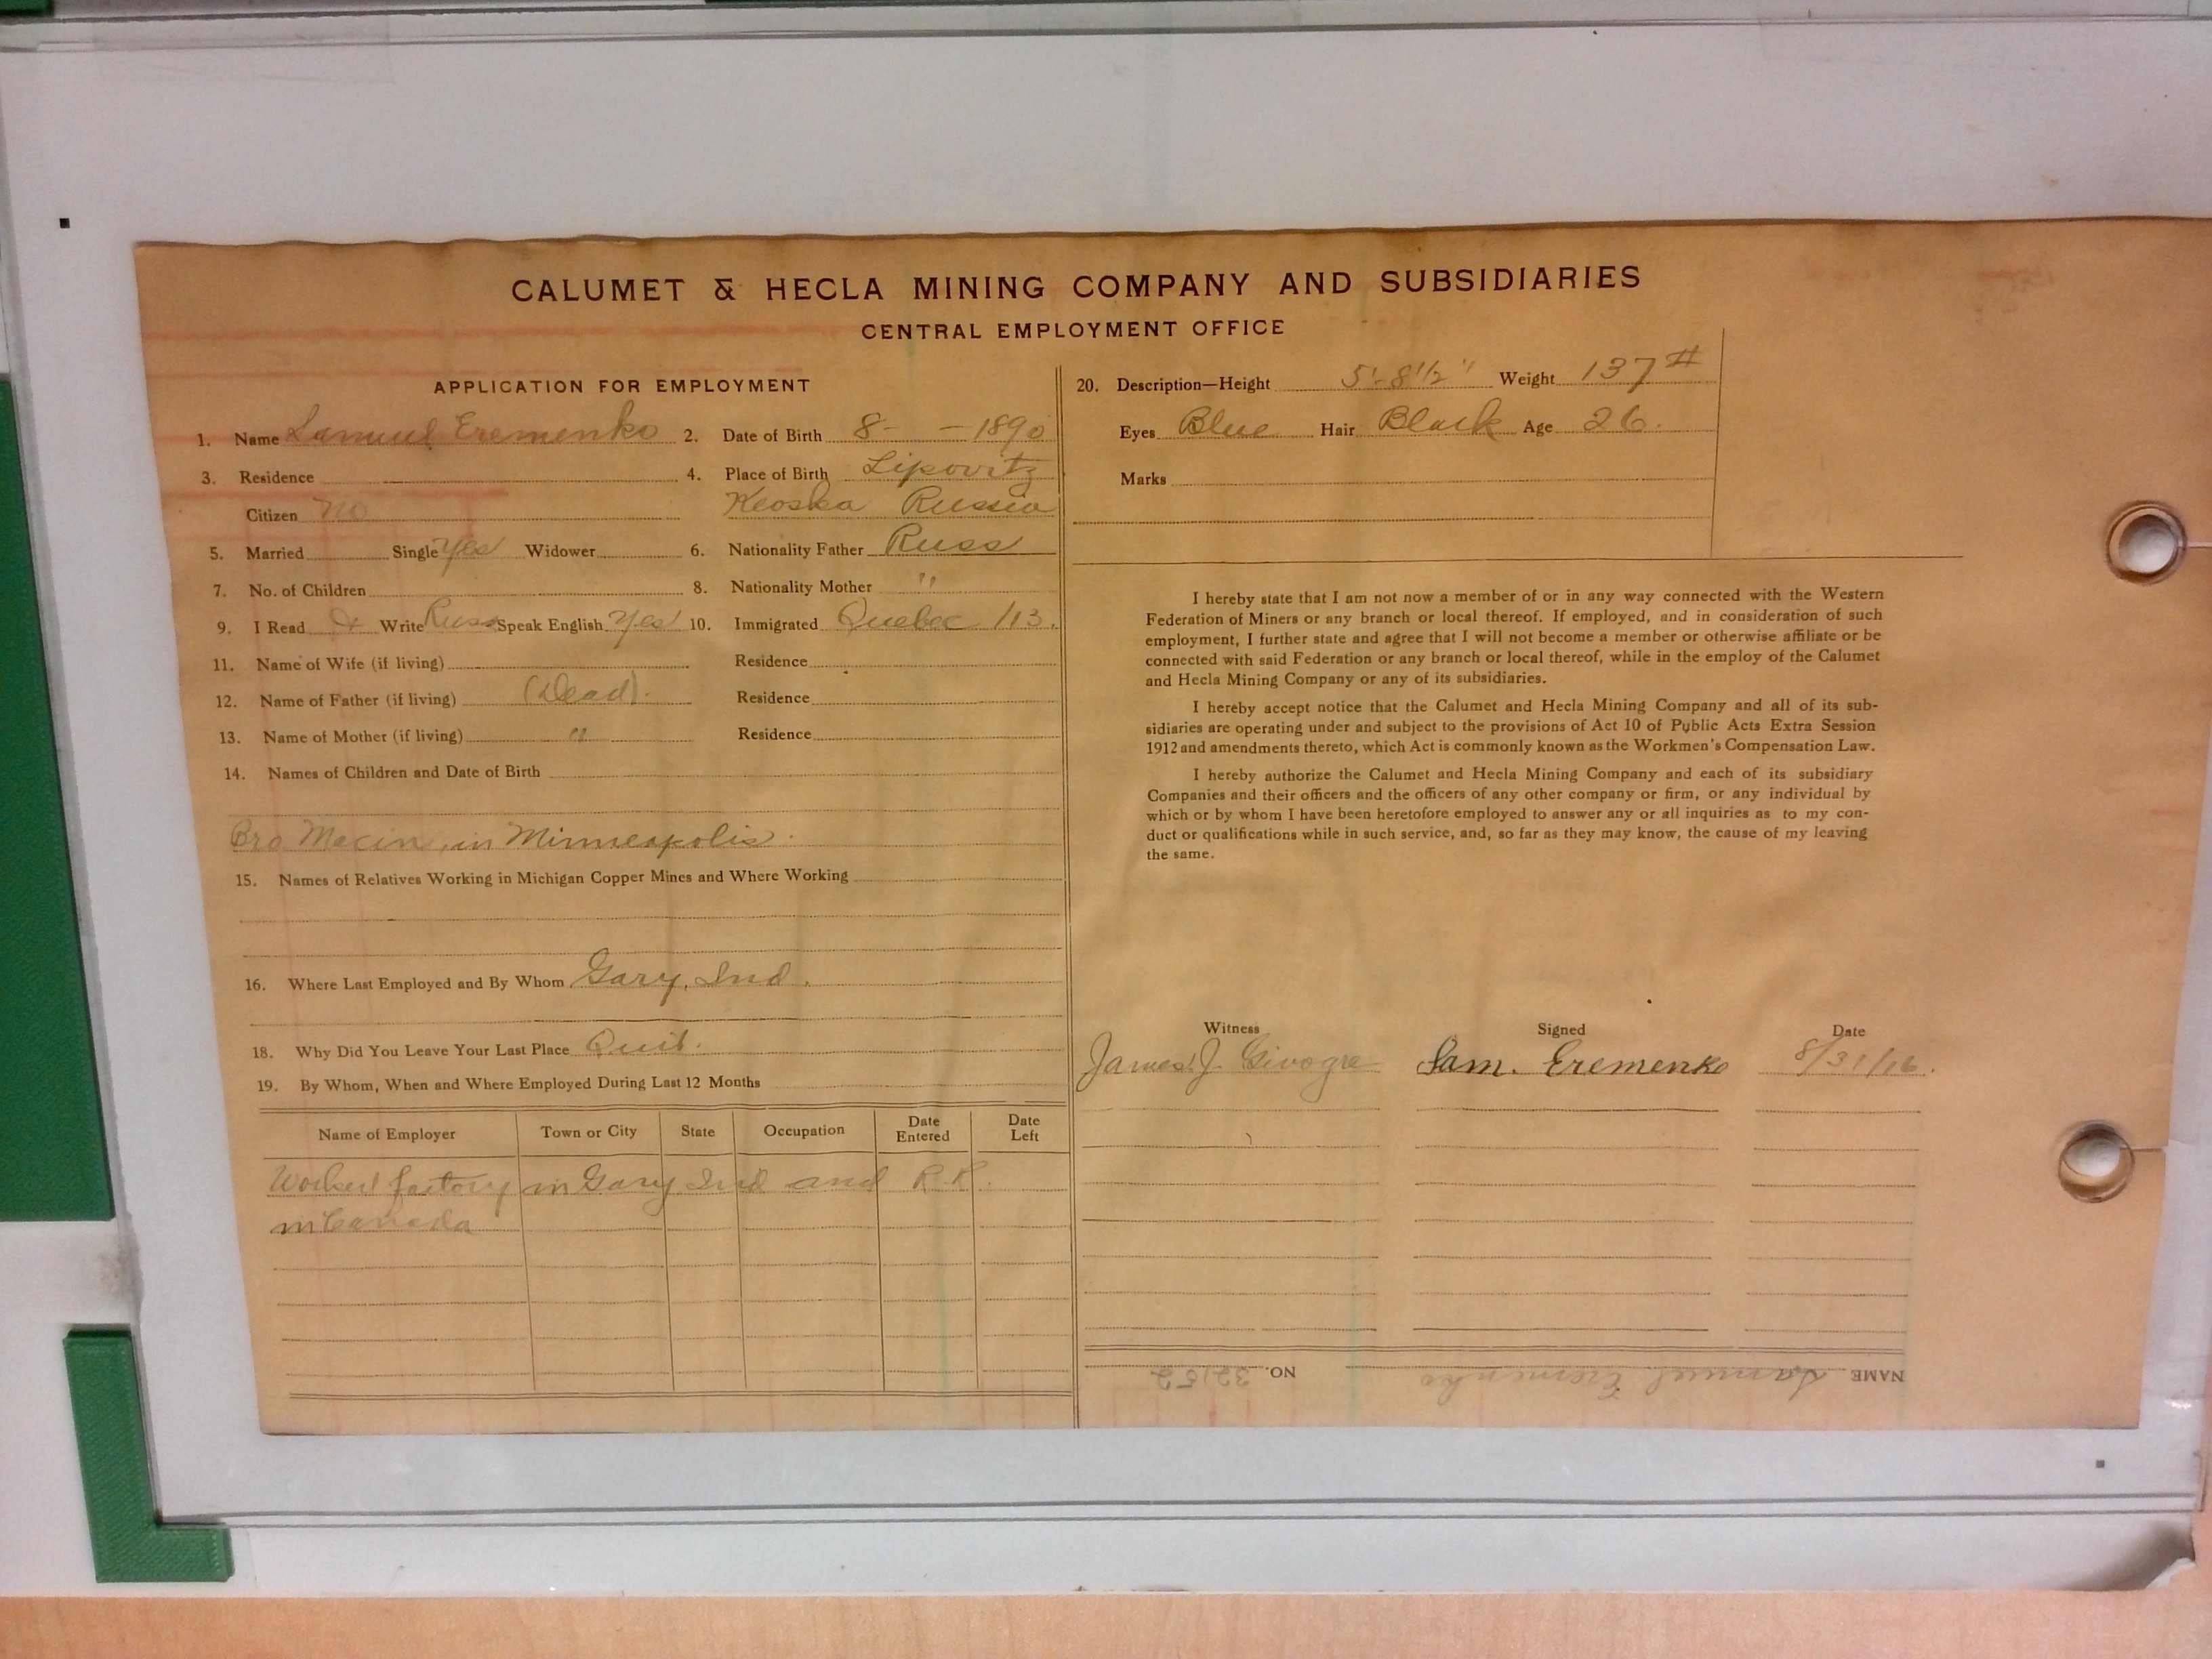 CALUMET & HECLA MINING COMPANY AND SUBSIDIARIES
CENTRAL EMPLOYMENT OFFICE
APPLICATION FOR EMPLOYMENT
1. Name Samuel Eremenko 2. Date of Birth 8- -1890
3. Residence 4. Place of Birth Lipovitz
Citizen no Keoska Russia
5. Married Single Yes Widower 6. Nationality Father Russ
7. No. of Children 8. Nationality Mother "
9. I Read & Write Russ Speak English Yes 10. Immigrated Quebec 113.
11. Name of Wife (if living) Residence
12. Name of Father (if living) (Dead). Residence
13. Name of Mother (if living) " Residence
14. Names of Children and Date of Birth
Bro Macin, in Minneapolis.
15. Names of Relatives Working in Michigan Copper Mines and Where Working
16. Where Last Employed and By Whom Gary, Ind.
18. Why Did You Leave Your Last Place Quit.
19. By Whom, When and Where Employed During Last 12 Months
Name of Employer Town or City State Occupation Date Entered Date Left
Worked factory in Gary Ind and R.R.
in Canada
20. Description—Height 5'-8 1/2" Weight 137#
Eyes Blue Hair Black Age 26.
Marks
I hereby state that I am not now a member of or in any way connected with the Western
Federation of Miners or any branch or local thereof. If employed, and in consideration of such
employment, I further state and agree that I will not become a member or otherwise affiliate or be
connected with said Federation or any branch or local thereof, while in the employ of the Calumet
and Hecla Mining Company or any of its subsidiaries.
I hereby accept notice that the Calumet and Hecla Mining Company and all of its sub-
sidiaries are operating under and subject to the provisions of Act 10 of Public Acts Extra Session
1912 and amendments thereto, which Act is commonly known as the Workmen's Compensation Law.
I hereby authorize the Calumet and Hecla Mining Company and each of its subsidiary
Companies and their officers and the officers of any other company or firm, or any individual by
which or by whom I have been heretofore employed to answer any or all inquiries as to my con-
duct or qualifications while in such service, and, so far as they may know, the cause of my leaving
the same.
Witness Signed Date
James J. Givogre Sam. Eremenko 8/31/16.
NAME Samuel Eremenko NO. 32152